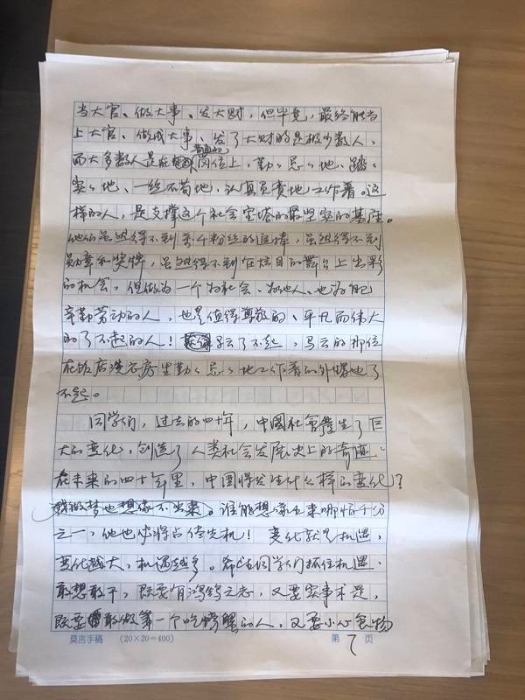 当大官、做大事、发大财，但毕竟，最终能当
上大官、做成大事、发了大财的是极少数人，
而大多数人是在普通的岗位上，勤勤恳恳地、踏踏
实实地、一丝不苟地、认真负责地工作着。这
样的人，是支撑这个社会宝塔的最坚实的基座。
他们虽然得不到千万粉丝的追捧，虽然得不到
勋章和奖牌，虽然得不到在炫目的舞台上出彩
的机会，但做为一个为社会、为他人、也为自己
辛勤劳动的人，也是值得尊敬的、平凡而伟大
的了不起的人！马云了不起，马云的那位
在饭店洗衣房里勤勤恳恳地工作着的外甥也了
不起。
同学们，过去的四十年，中国社会发生了巨
大的变化，创造了人类社会发展史上的奇迹。
在未来的四十年里，中国将发生什么样的变化？
我做梦也想象不出来。谁能想象出来哪怕千分
之一，他也必将占得先机！变化就是机遇，
变化越大，机遇越多。希望同学们抓住机遇，
敢想敢干，既要有鸿鹄之志，又要实事求是，
既要敢做第一个吃螃蟹的人，又要小心食物
莫言手稿 (20×20=400) 第 7 页